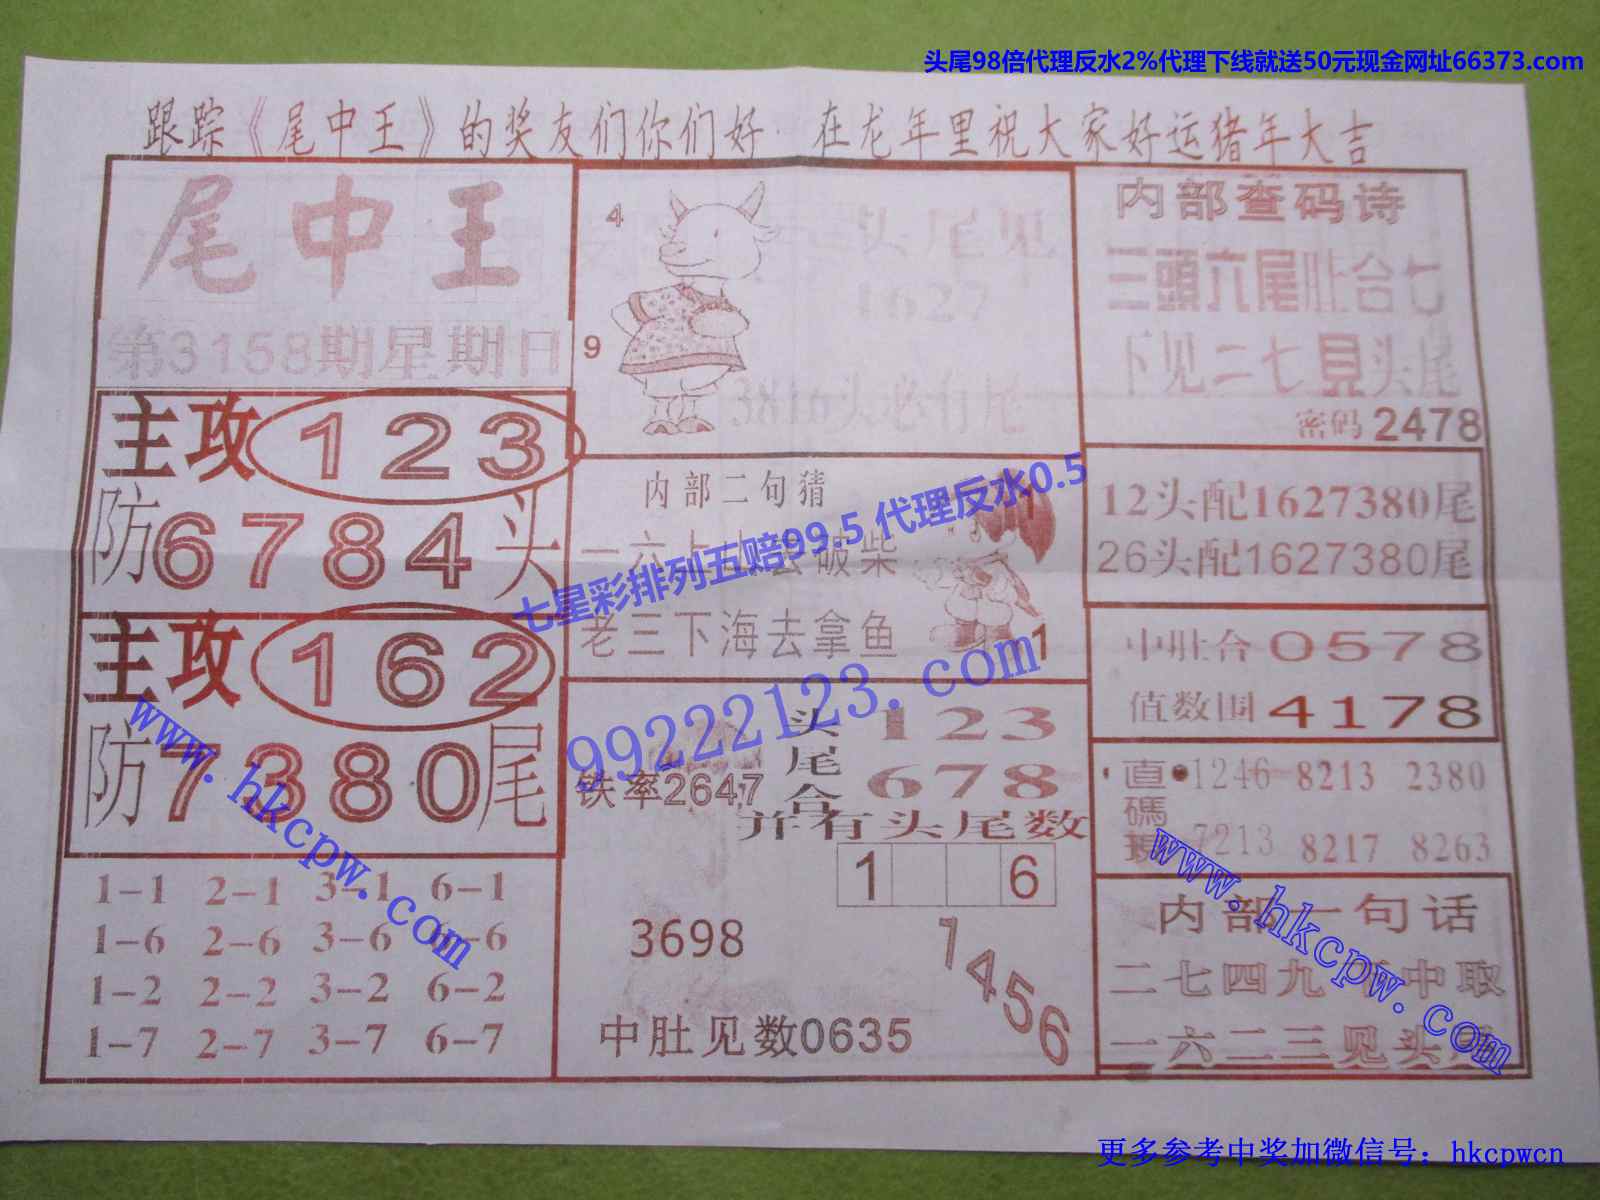 头尾98倍代理反水2%代理下线就送50元现金网址66373.com
跟踪《尾中王》的奖友们你们好 在龙年里祝大家好运猪年大吉
尾中王
第3158期星期日
主攻123
防6784头
主攻162
防7380尾
1-1 2-1 3-1 6-1
1-6 2-6 3-6 6-6
1-2 2-2 3-2 6-2
1-7 2-7 3-7 6-7
4
9
头尾见
1627
3816头必有尾
内部二句猜
一六上山去破柴
老三下海去拿鱼
1
1
七星彩排列五赔99.5 代理反水0.5
99222123.com
铁率2647
头尾合
123
678
并有头尾数
1 6
3698
7456
中肚见数0635
内部查码诗
三頭六尾肚合七
下见二七見头尾
密码2478
12头配1627380尾
26头配1627380尾
中肚合0578
值数围4178
直碼
1246 8213 2380
7213 8217 8263
内部一句话
二七四九 中取
一六二三见头尾
www.hkcpw.com
www.hkcpw.com
更多参考中奖加微信号：hkcpwcn